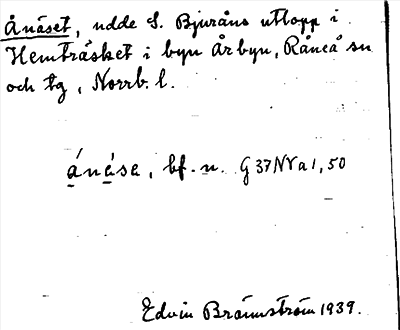 Ånäset, udde S. Bjuråns utlopp i
Hemträsket i byn Årbyn, Råneå sn
och tg, Norrb. l.
ánása, bf. n. G37NVa1,50
Edvin Brännström 1939.